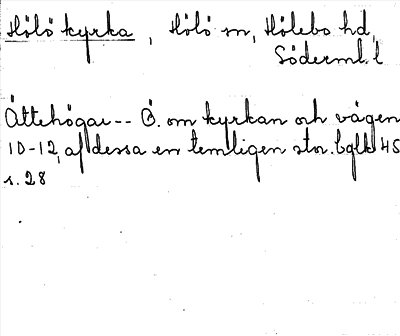 Hölö kyrka, Hölö sn, Hölebo hd,
Söderml. l
Ättehögar -- Ö. om kyrkan och vägen
10-12, af dessa en temligen stor. bglk 45
s. 28